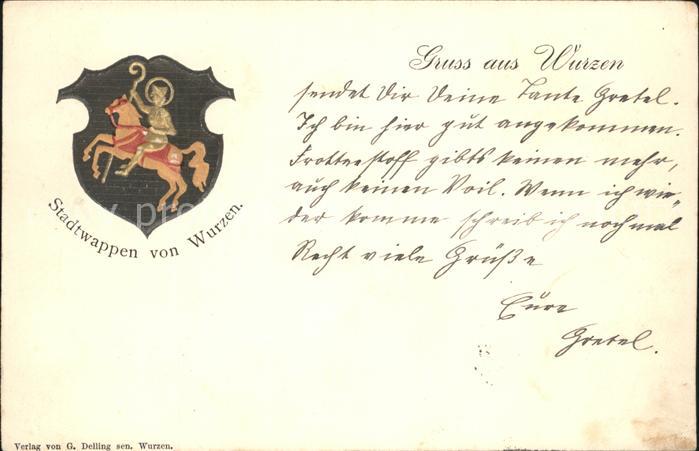 Gruss aus Wurzen
sendet Dir Deine Tante Gretel.
Ich bin hier gut angekommen.
Frotteestoff gibts keinen mehr,
auch keinen Voil. Wenn ich wie-
der komme schreib ich nochmal
Recht viele Grüße
Eure
Gretel.
Stadtwappen von Wurzen.
Verlag von G. Delling sen. Wurzen.